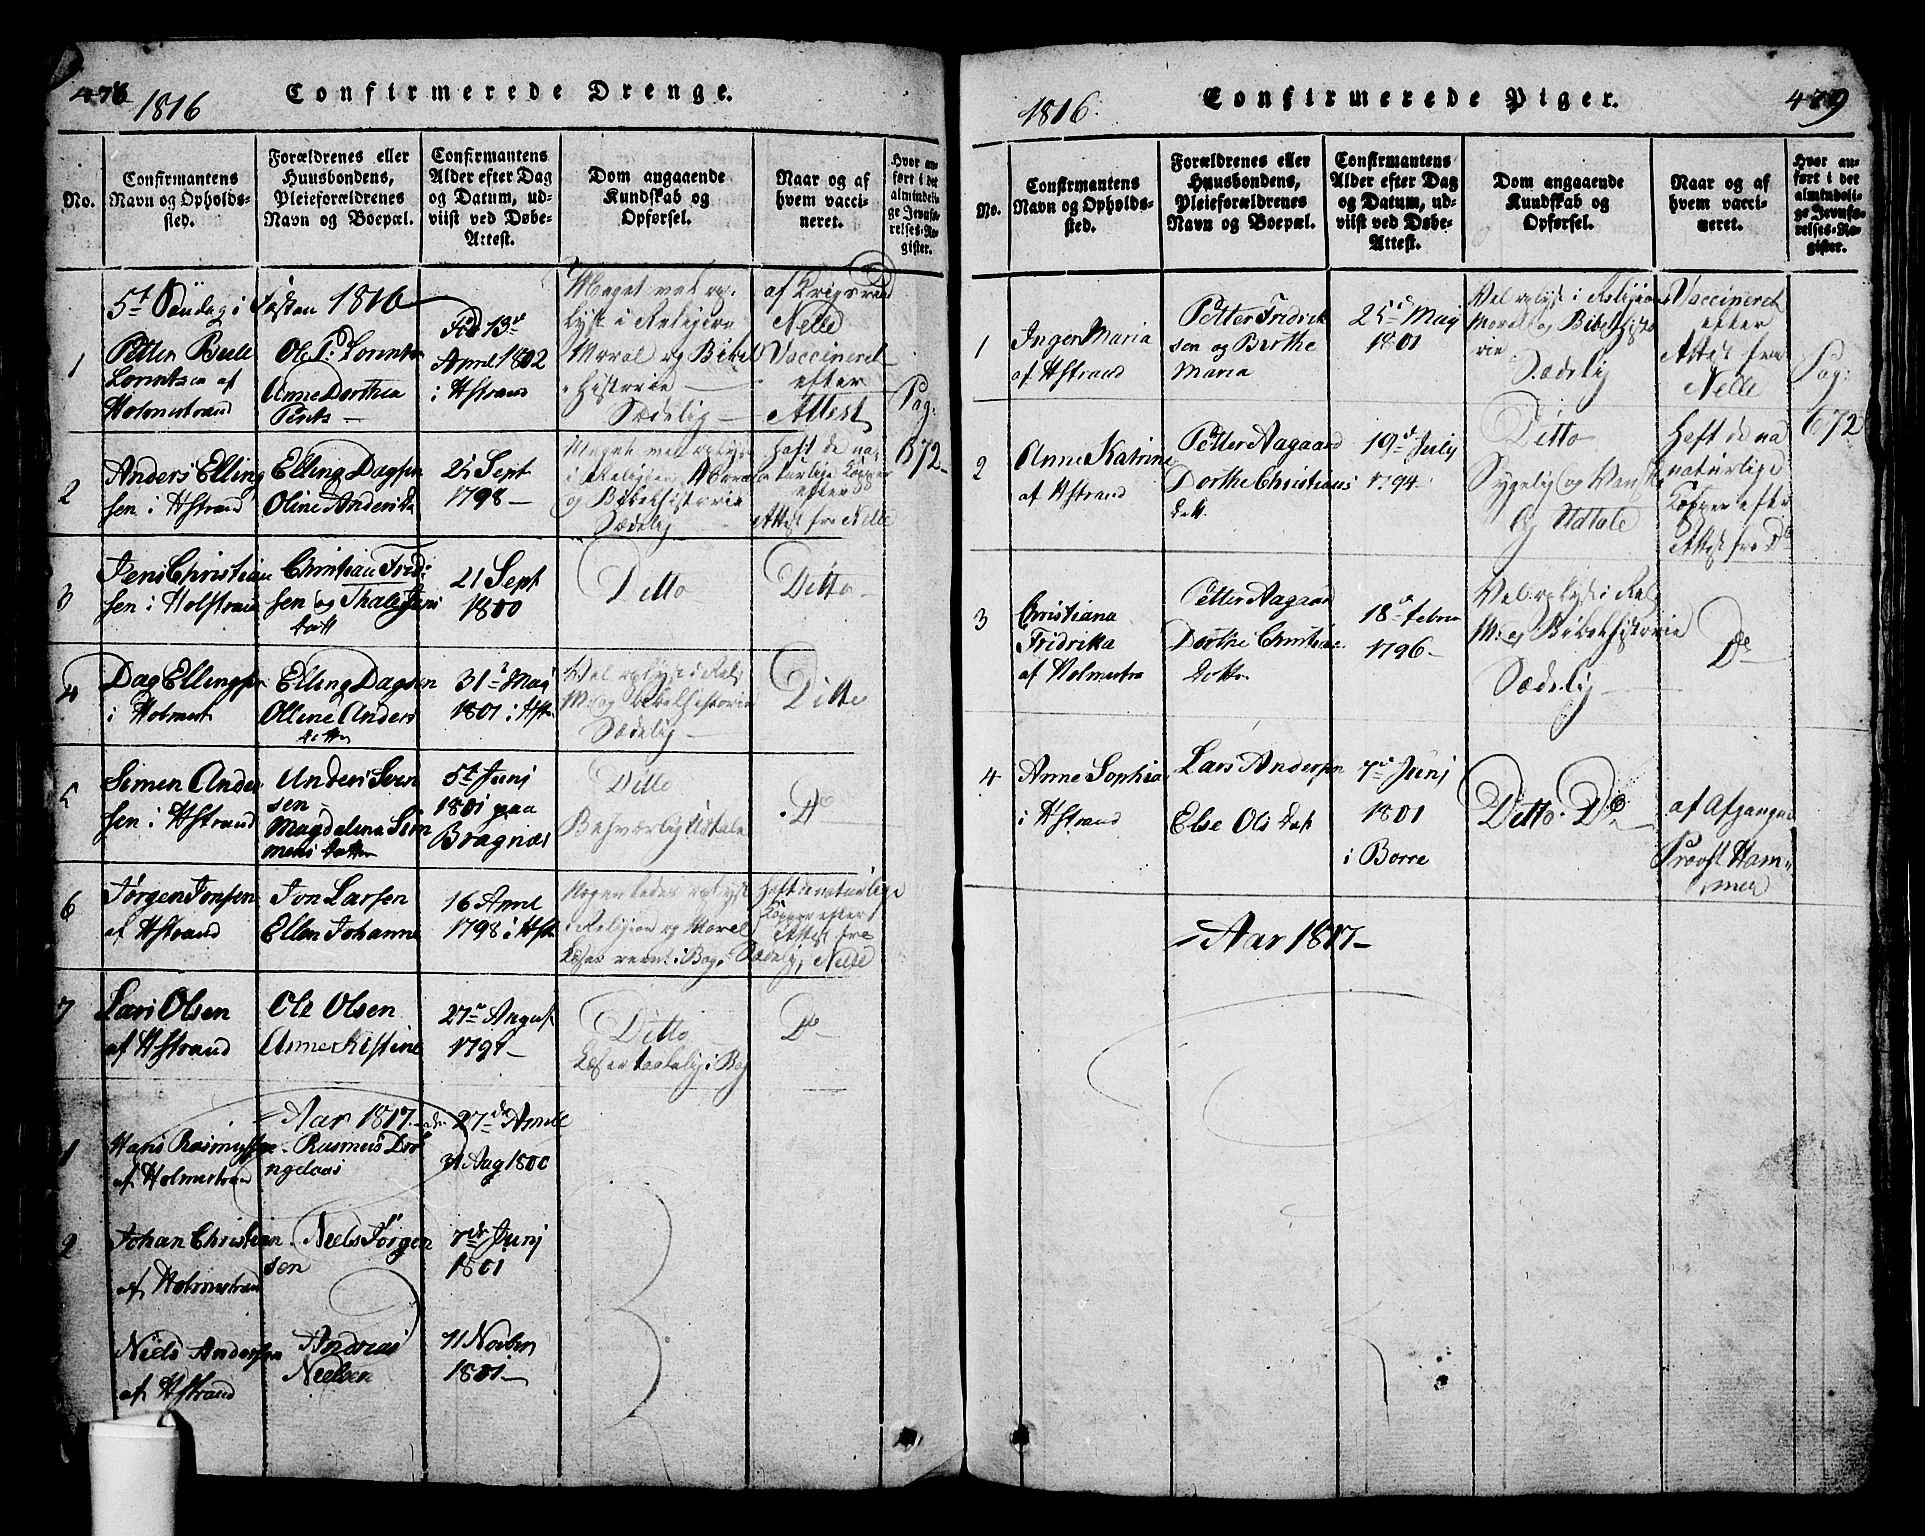 478
1816
Confirmerede Drenge.
No.
Confirmantens
Navn og Opholds-
sted.
Forældrenes eller
Huusbondens,
Pleieforældrenes
Navn og Boepæl.
Confirmantens
Alder efter Dag
og Datum, ud-
viist ved Døbe-
Attest.
Dom angaaende
Kundskab og
Opførsel.
Naar og af
hvem vacci-
neret.
Hvor an-
ført i det
almindeli-
ge Jevnfø-
relses-Re-
gister.
5t Søndag i Fasten 1816
1
Petter Beele
Lorentsen af
Holmestrand
Ole P: Lorents
Anne Dorthea
Pents
Fød 13de
April 1802
i Hstrand
Meget vel op-
lyst i Religion
Moral og Bibel
Historie
Sædelig
af Krigsraad
Nelle
Vaccineret
efter
Attest
Pag:
672
2
Anders Elling
sen i Hstrand
Elling Dagsen
Oline Andersda
21 Sept
1798
Meget vel oplyst
i Religion Moral
og Bibelhistorie
Sædelig
Haft de na-
turlige Kopper
efter
Attest fra Nelle
3
Jens Christian
sen i Holstrand
Christian Fred:
sen og Thale Jens
datt
21 Sept
1800
Ditto
Ditto
4
Dag Ellingsen
i Holmest
Elling Dagsen
Ollene Anders
datter
31 Maj
1801 i Hst.
Vel oplyst i Rel:
M: og Bibelhistorie
Sædelig
Ditto
5
Simen Ander
sen i Hstrand
Anders Sven
sen
Magdalena Sim
mens datter
5t Junj
1801 paa
Bragnæs
Ditto
Besværlig Udtale
Do
6
Jørgen Jonsen
af Hstrand
Jon Larsen
Ellen Johanne
16 April
1798 i Hst.
Nogenledes oplyst
i Religion og Moral
Læser reent i Bog,
Sædelig
Haft de naturlige
Kopper efter
Attest fra
Nelle
7
Lars Olsen
af Hstrand
Ole Olsen
Anne Kistine
27 August
1797
Ditto
Læser taalelig i Bog
Do
Aar 1817
27de April
1
Hans Rasmussen
af Holmestrand
Rasmus Drø
ngelaas
31 Aug 1800
2
Johan Christian
af Holmestrand
Niels Jørgen
sen
7de Junj
1801
Niels Andersen
af Hstrand
Andreas
Nielsen
11 Novbr
1801
479
1816.
Confirmerede Piger.
No.
Confirmantens
Navn og Opholds-
sted.
Forældrenes eller
Huusbondens,
Pleieforældrenes
Navn og Boepæl.
Confirmantens
Alder efter Dag
og Datum, ud-
viist ved Døbe-
Attest.
Dom angaaende
Kundskab og
Opførsel.
Naar og af
hvem vacci-
neret.
Hvor an-
ført i det
almindeli-
ge Jevnfø-
relses-Re-
gister.
1
Inger Maria
af Hstrand
Petter Fridrik
sen og Birthe
Maria
25de Maj
1801
Vel oplyst i Religion
Moral og Bibelhisto
rie
Sædelig
Vaccineret
efter
Attest fra
Nelle
Pag:
672
2
Anne Katrine
af Hstrand
Petter Aagaard
Dorthe Christians
datt.
19de July
1794
Ditto
Sygelig og Vanskelig
Udtale
Haft de na
turlige
Kopper efter
Attest fra Do
3
Christiana
Fridrika
af Holmestra
Petter Aagaard
Dorthe Christians
Dotter
18de Febru
1796
Vel oplyst i Rel:
M: og Bibelhistorie
Sædelig
Do
4
Anne Sophia
i Hstrand
Lars Andersen
Else Ols datt
7de Junj
1801
i Borre
Ditto. Do
af Afgangne
Provst Ham-
mer
Aar 1817